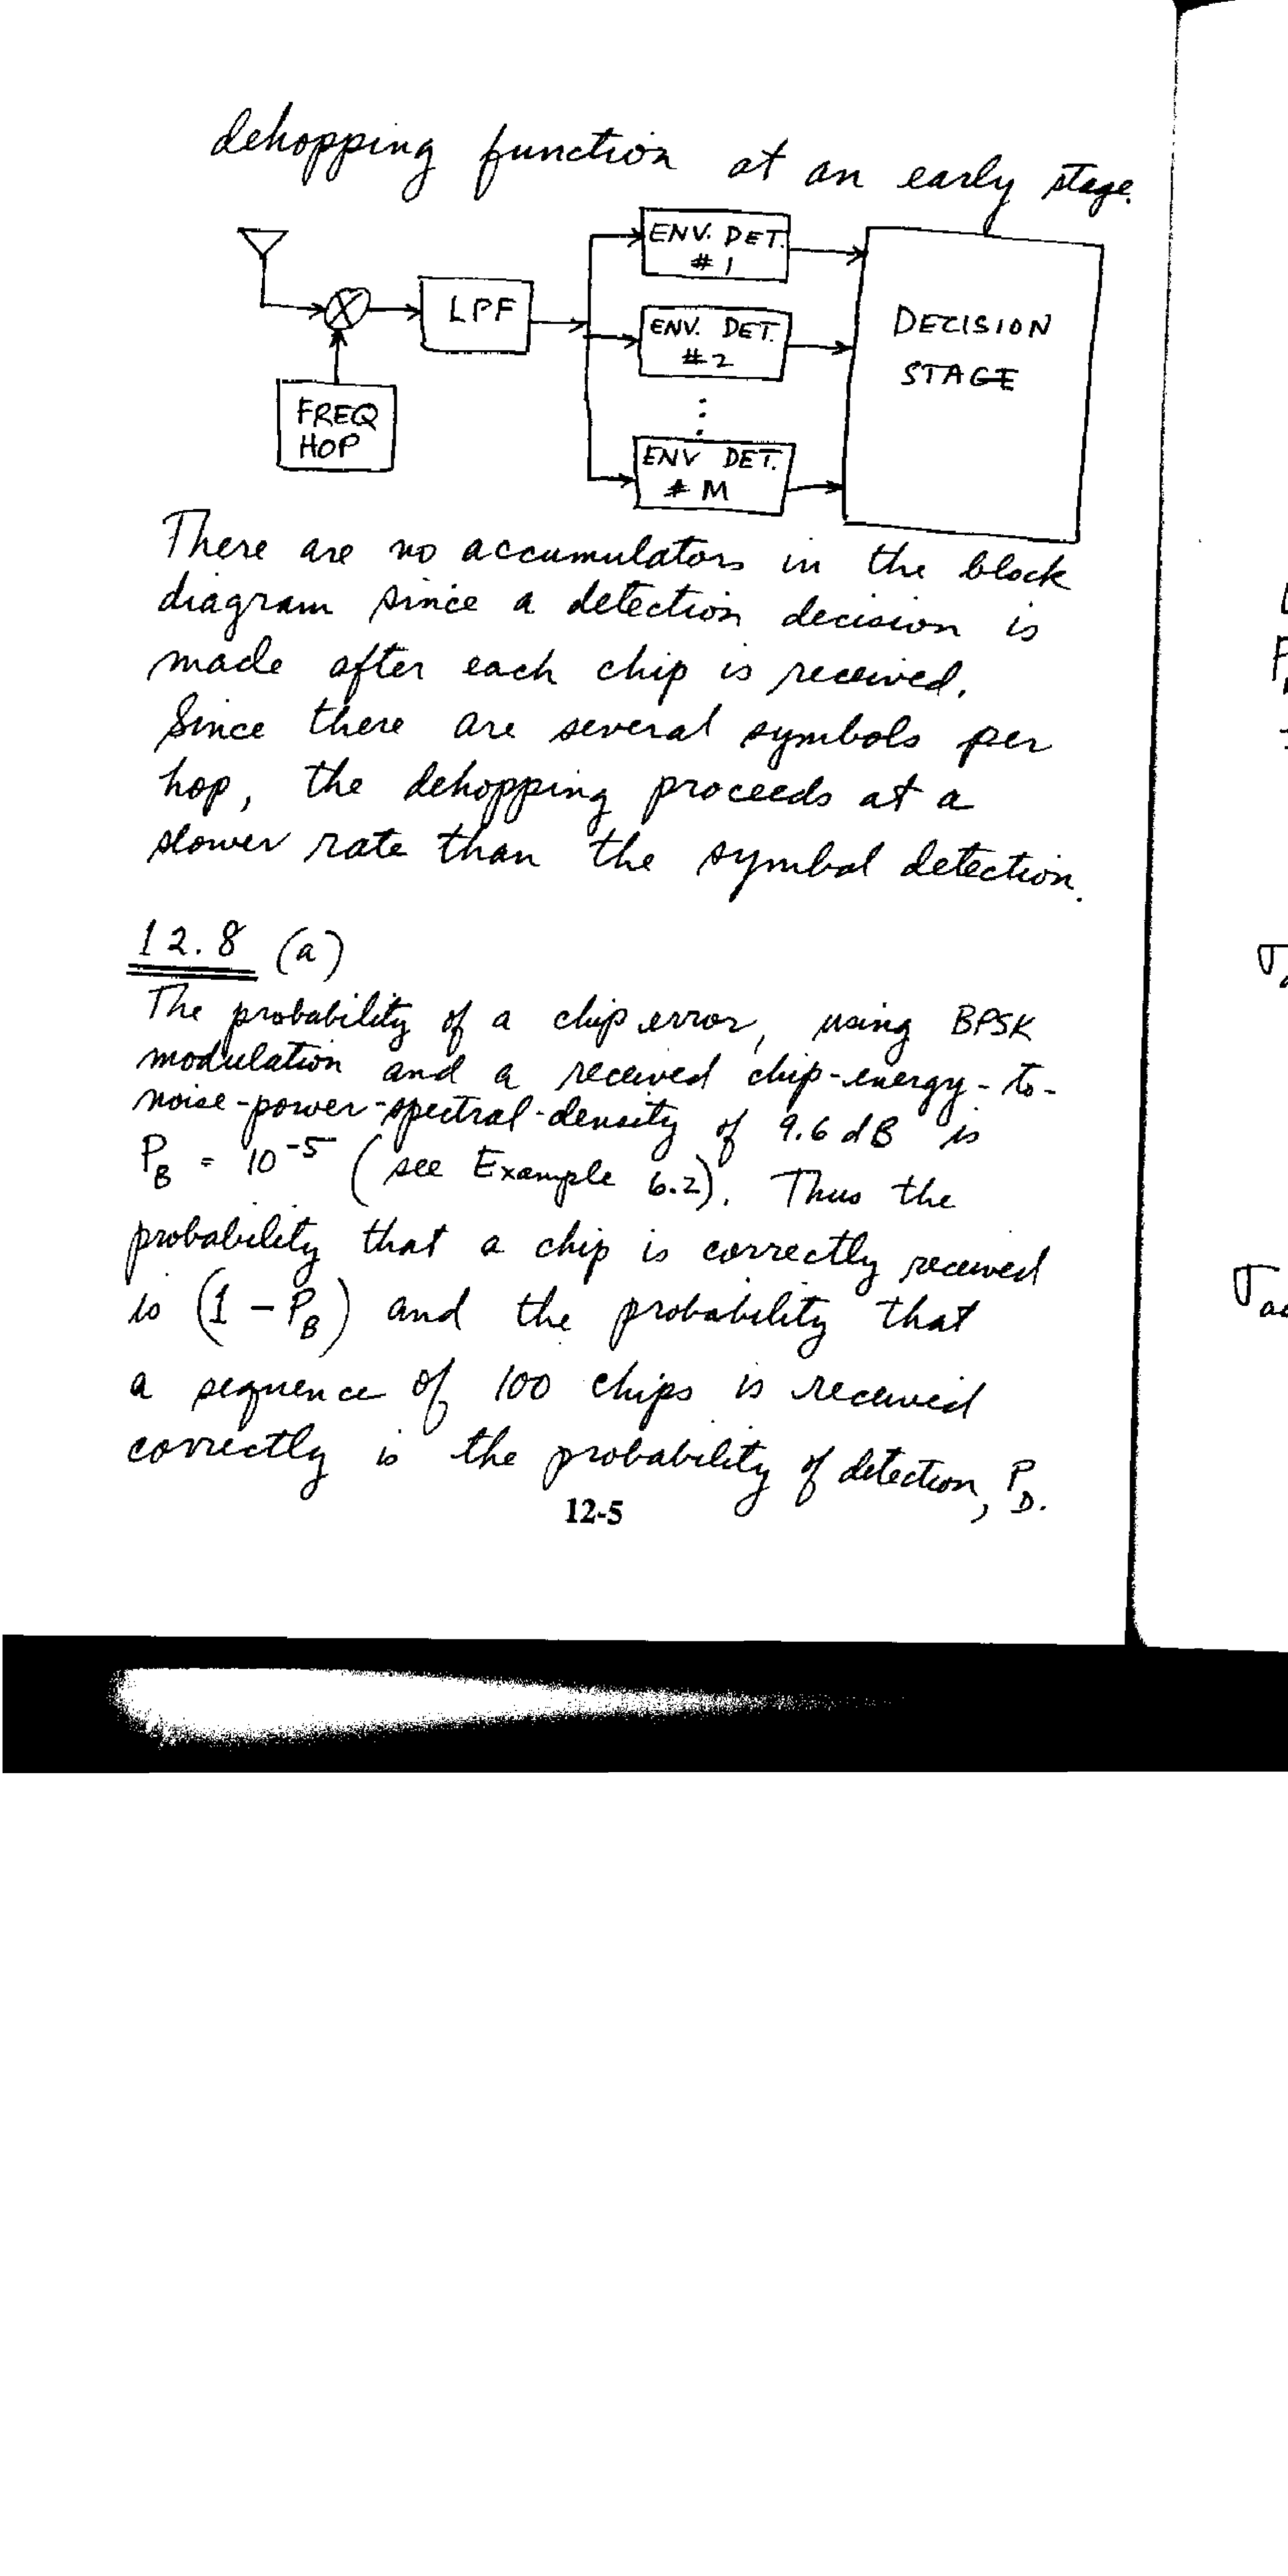 dehopping function at an early stage.
ENV. DET.
# 1
LPF
ENV. DET.
# 2
DECISION
STAGE
FREQ
HOP
ENV DET.
# M
There are no accumulators in the block
diagram since a detection decision is
made after each chip is received.
Since there are several symbols per
hop, the dehopping proceeds at a
slower rate than the symbol detection.
12.8 (a)
The probability of a chip error, using BPSK
modulation and a received chip-energy-to-
noise-power-spectral-density of 9.6 dB is
P_B = 10^-5 (see Example 6.2). Thus the
probability that a chip is correctly received
is (1 - P_B) and the probability that
a sequence of 100 chips is received
correctly is the probability of detection, P_D.
12-5